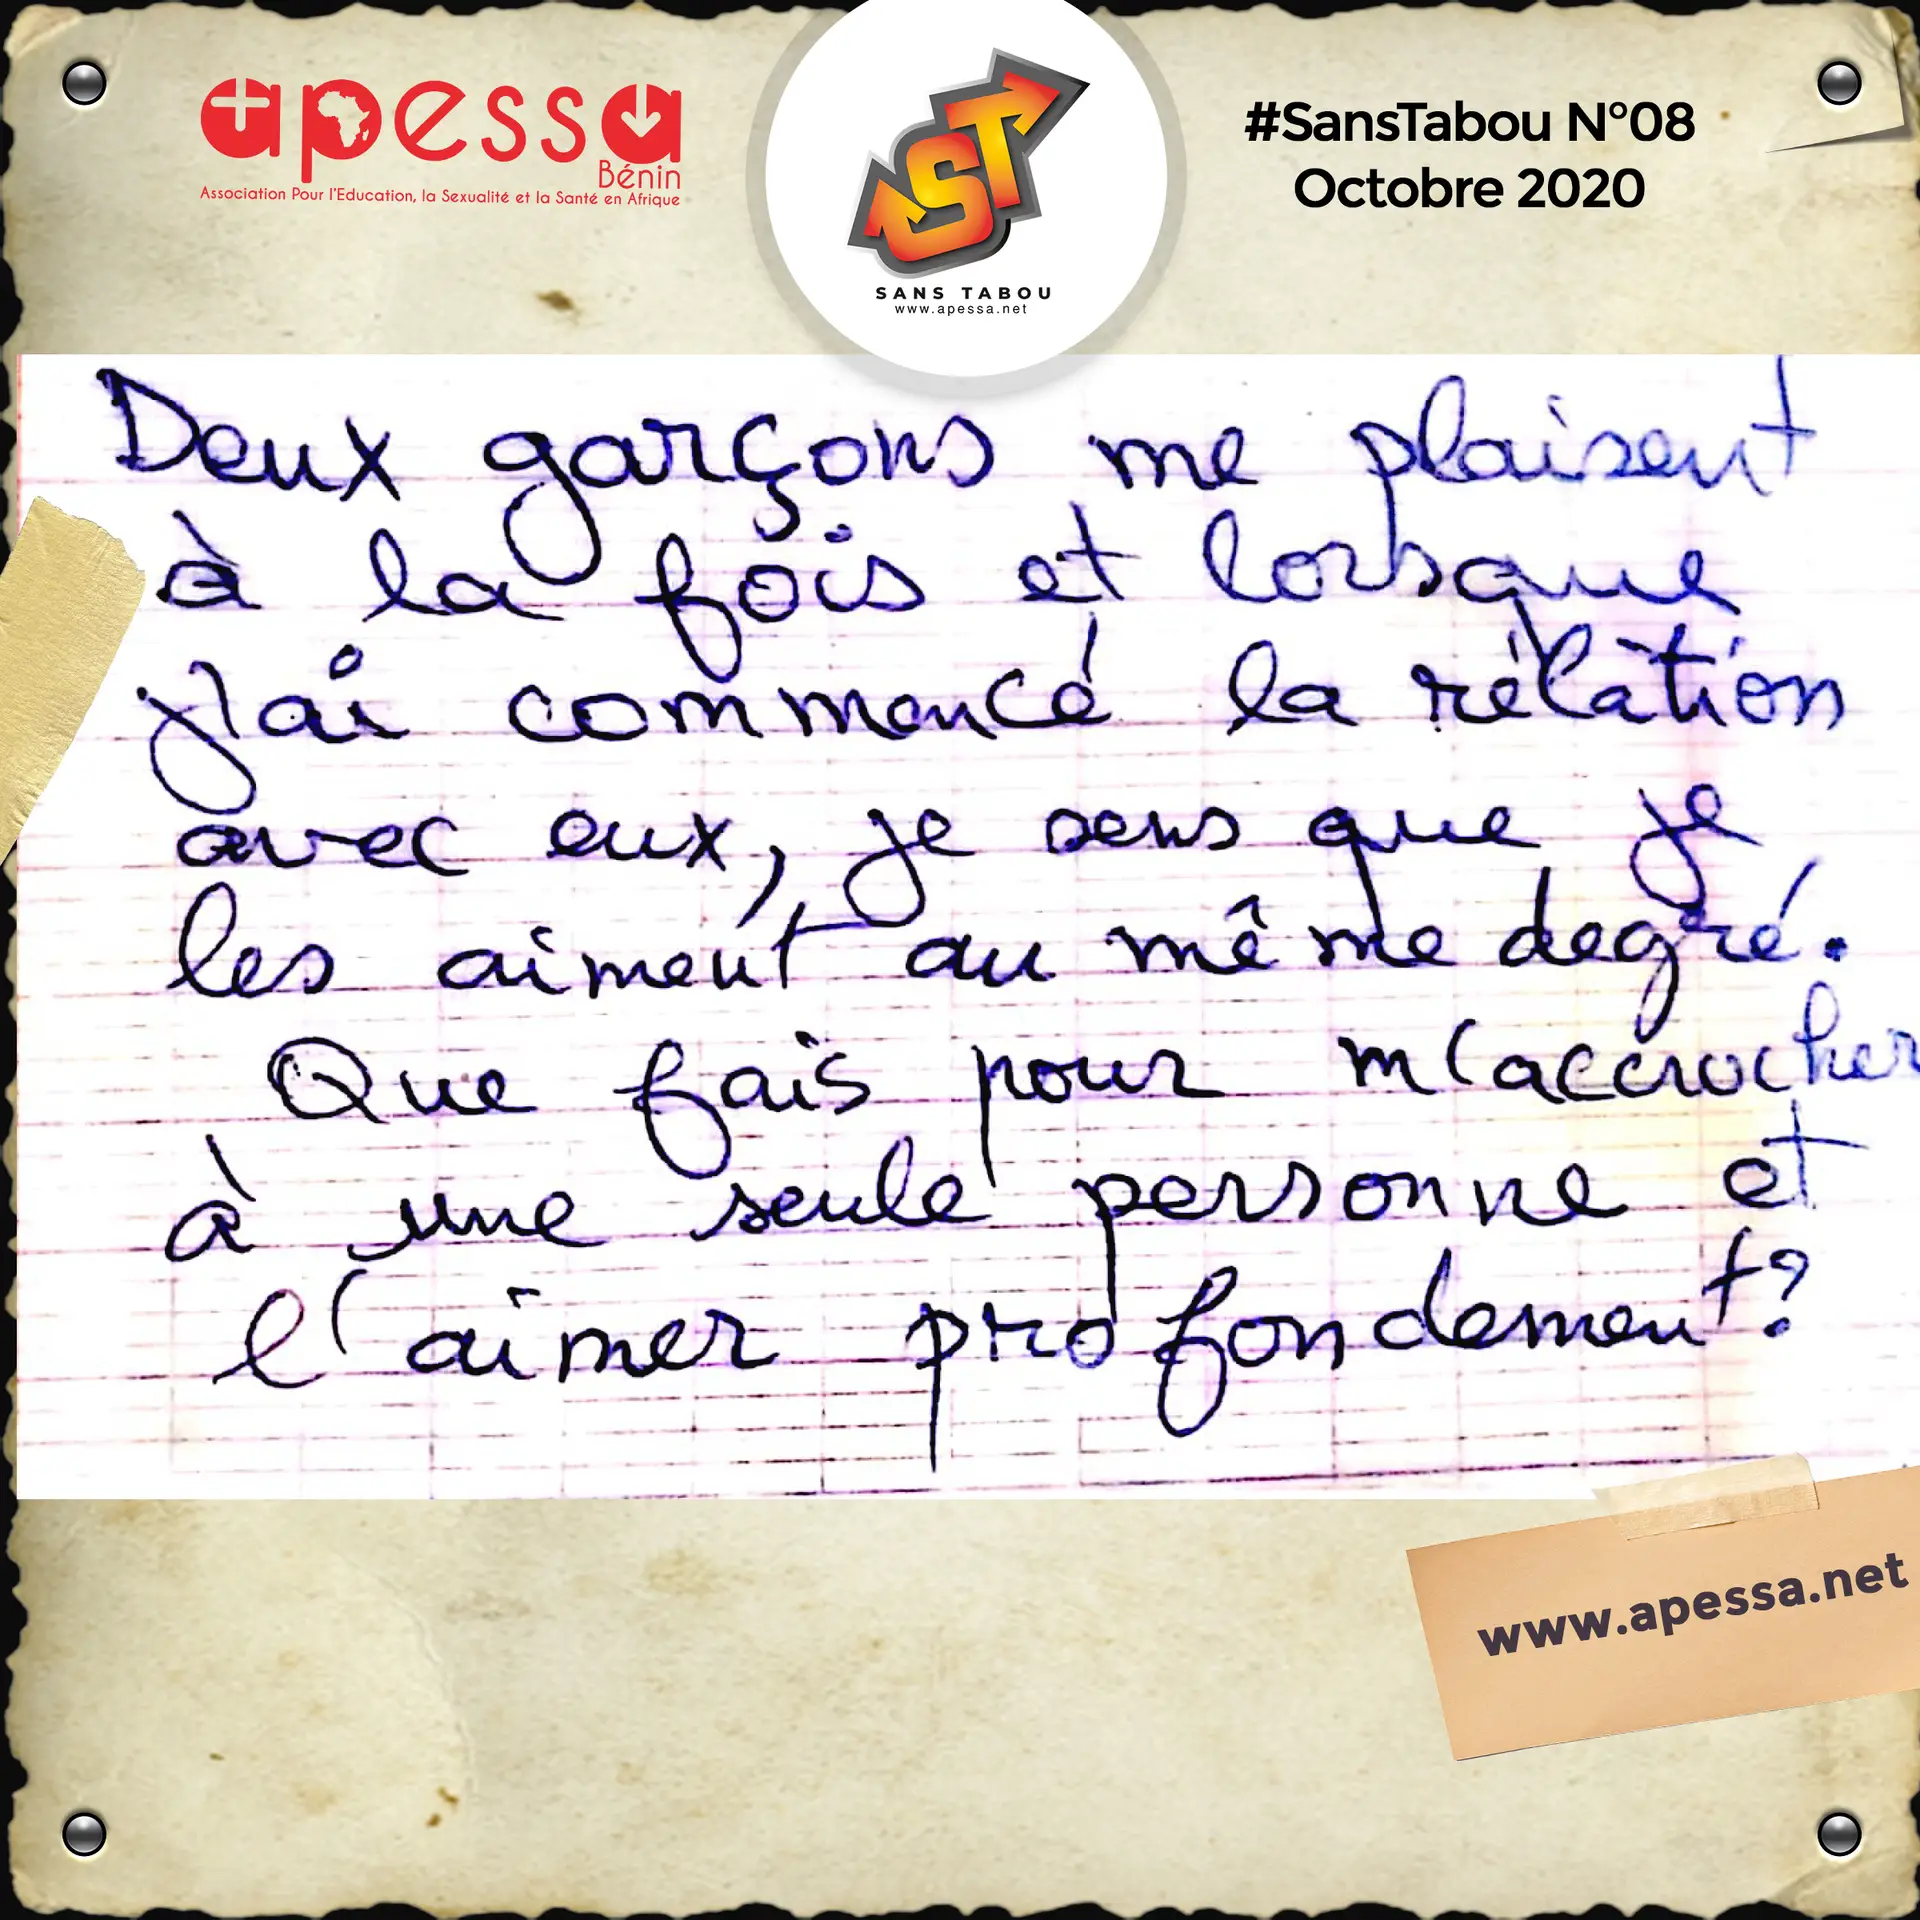 apessa
Bénin
Association Pour l'Education, la Sexualité et la Santé en Afrique
ST
SANS TABOU
www.apessa.net
#SansTabou N°08
Octobre 2020
Deux garçons me plaisent
à la fois et lorsque
j'ai commencé la rélation
avec eux, je sens que je
les aiment au même degré.
Que fais pour m'accrocher
à une seule personne et
l'aimer profondement?
www.apessa.net